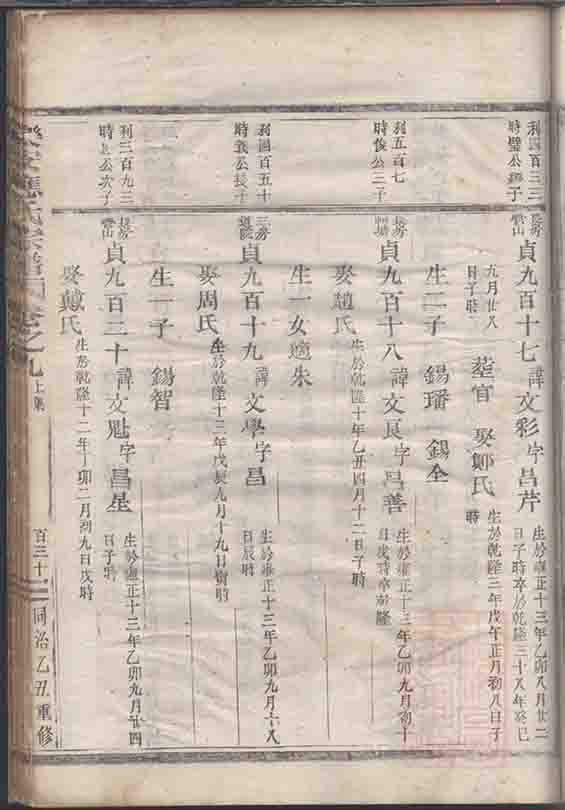 利四百三三
時璧公
長房
貞九百十七 諱文彩 字昌芹
生於雍正十三年乙卯八月廿二
日子時卒於乾隆三十八年癸巳
九月廿八
日子時
塟官 娶鄭氏
生於乾隆三年戊午正月初八日子
時
生二子 錫璠 錫全
利五百七
時俊公三子
長房
貞九百十八 諱文良 字昌善
生於雍正十三年乙卯九月初十
日戌時卒於乾隆
娶趙氏
生於乾隆十年乙丑四月十二日子時
生一女適朱
利四百五十
時義公長子
三房
貞九百十九 諱文學 字昌
生於雍正十三年乙卯九月六八
日辰時
娶周氏
生於乾隆十三年戊辰九月十九日樹時
生一子 錫智
利三百九三
時上公次子
長房
當山
貞九百二十 諱文魁 字昌星
生於雍正十三年乙卯九月廿四
日子時
娶戴氏
生於乾隆十二年丁卯二月初九日戌時
氏宗譜 卷之九 上集
百三十
同治乙丑重修